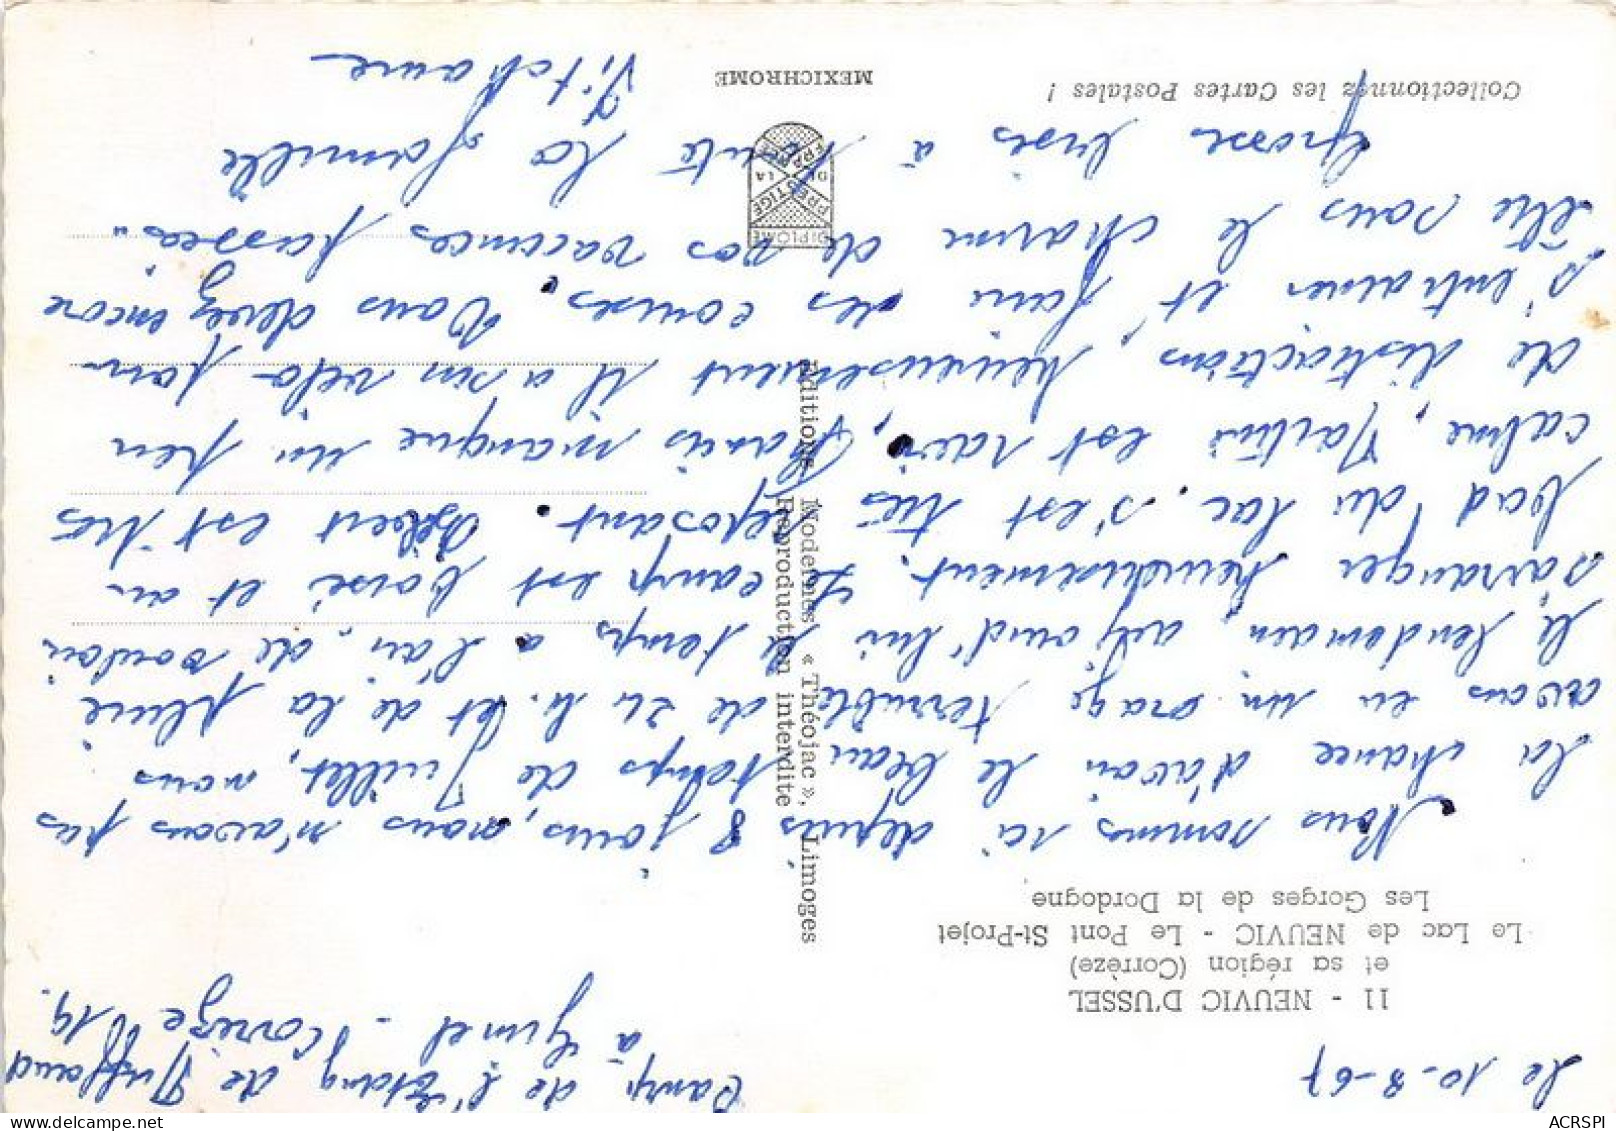 Le 10-8-67
Camp de l'Etang de Ruffaud
à Gimel - Corrèze 19.
11 - NEUVIC D'USSEL
et sa région (Corrèze)
Le Lac de NEUVIC - Le Pont St-Projet
Les Gorges de la Dordogne
Nous sommes ici depuis 8 jours, nous n'avons pas
la chance d'avoir le beau temps de Juillet, nous
avons eu un orage terrible de 24 h. et de la pluie
le lendemain, aujourd'hui le temps a l'air de vouloir
s'arranger heureusement. Le camp est boisé et au
bord du lac. s'est très reposant. Gilbert est très
calme, est ravi, Francis manque un peu
de distractions, heureusement il a son vélo pour
s'entrainer et faire des courses. Vous devez encore
être sous le charme de vos vacances passées..
Grosses bises à toute la famille
MEXICHROME
Collectionnez les Cartes Postales !
DIPLÔME
PRESTIGE
DE LA
FRANCE
Editions Modernes « Théojac », Limoges
Reproduction interdite
ACRSPI